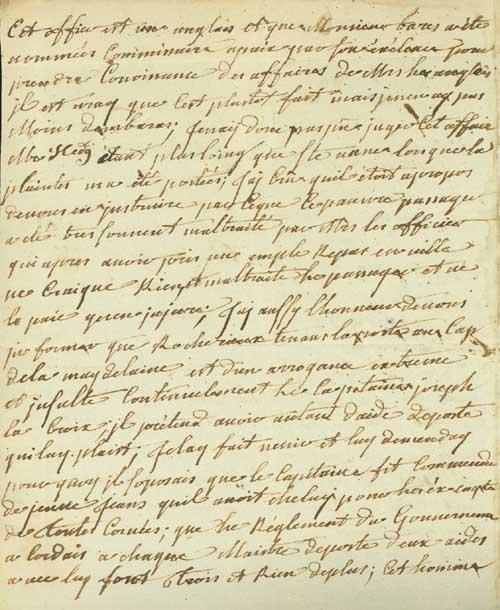 Cet officie est un anglais et que Monsieur bares a été
nommées Commissaire apaix par son exelance pour
prendre Connoisance des affaires de Mrs les anglais
jl est vray que Cest plustot fait mais jene a pas
Moins dembaras; Jenay donc pas pu juger Cet affaire
Mr étant plus loing que Ste anne lorsque la
plaintes ma été portées; J'ay Cru quil étoit apropos
devous en justruire parceque le pauvre passage
a été tres souvent maltraité par Mrs les officier
qui apres avoir pris un emple Repas en ville
ne Craigne Rien et maltraite les passage et ne
le paie quen injure; J'ay aussy lhonneur de vous
jnformer que Rochereaux tenans la poste au Cap
dela magdelaine est d'un arrogance extreme
et jnsulte Continuelement le Capitaine joseph
la Croix; jl prétend avoir autant daide deposte
quil luy plait; Je lay fait venir et luy demanday
pourquoy jl soposais que le Capitaine fit Commende
de jeune Jeans quil avoit ches luy pour les
de toute Corvées; que le Reglement du Gouvernem
a Cordais a chaque Maitre deposte deux aides
avec luy font trois et Rien deplus; Cet homme